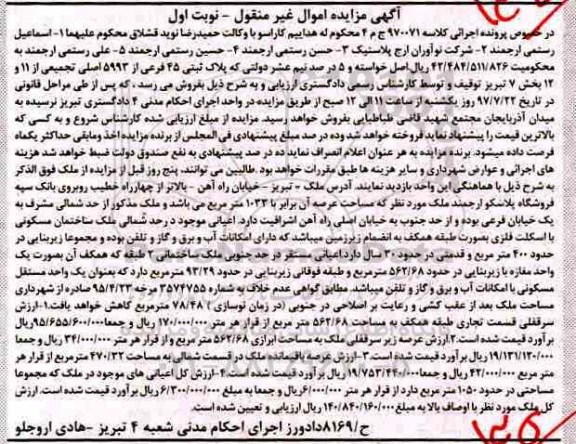 آگهی مزایده اموال غیر منقول - نوبت اول
در خصوص پرونده اجرائی کلاسه ۹۷۰۰۷۱ ج م ۴ محکوم له هدایتیم کاراسو با وکالت حمیدرضا نوید قشلاق محکوم علیهما ۱- اسماعیل
رستمی ارجمند ۲- شرکت نوآوران ارج پلاستیک ۳- حسن رستمی ارجمند ۴- حسین رستمی ارجمند ۵- علی رستمی ارجمند به
محکومیت ۴۲/۴۸۴/۵۱۱/۸۲۶ ریال اصل خواسته و ۵ در صد نیم عشر دولتی که پلاک ثبتی ۴۵ فرعی از ۵۹۹۳ اصلی تجمیعی از ۱۱ و
۱۲ بخش ۷ تبریز توقیف و توسط کارشناس رسمی دادگستری ارزیابی و به شرح ذیل بفروش می رسد، که پس از طی مراحل قانونی
در تاریخ ۹۷/۷/۲۲ روز یکشنبه از ساعت ۱۱ الی ۱۲ صبح از طریق مزایده در واحد اجرای احکام مدنی ۴ دادگستری تبریز نرسیده به
میدان آذربایجان مجتمع شهید قاضی طباطبایی بفروش خواهد رسید. مزایده از مبلغ ارزیابی شده کارشناس شروع و به کسی که
بالاترین قیمت را پیشنهاد نماید فروخته خواهد شد وده در صد مبلغ پیشنهادی فی المجلس از برنده مزایده اخذ ومابقی حداکثر یکماه
فرصت داده میشود. برنده مزایده به هر عنوان اعلام انصراف نماید ده در صد پیشنهادی به نفع صندوق دولت ضبط خواهد شد هزینه
های اجرائی و عوارض شهرداری و سایر هزینه ها طبق مقررات خواهد بود. طالبین می توانند، پنج روز قبل از مزایده از ملک فوق الذکر
به شرح ذیل با هماهنگی این واحد بازدید نمایند. آدرس ملک - تبریز - خیابان راه آهن - بالاتر از چهارراه خطیب روبروی بانک سپه
فروشگاه پلاسکو ارجمند ملک مورد نظر که مساحت عرصه آن برابر با ۱۰۳۳ متر مربع می باشد و ملک مذکور از حد شمالی مشرف به
یک خیابان فرعی بوده و از حد جنوب به خیابان اصلی راه آهن اشرافیت دارد. اعیانی موجود د رحد شمالی ملک ساختمان مسکونی
با اسکلت فلزی بصورت طبقه همکف به انضمام زیرزمین میباشد که دارای امکانات آب و برق و گاز و تلفن بوده و مجموعا زیربنایی در
حدود ۴۰۰ متر مربع و قدمتی در حدود ۳۰ سال دارد.اعیانی مستقر در حد جنوبی ملک ساختمانی ۲ طبقه که همکف آن بصورت یک
واحد مغازه با زیربنایی در حدود ۵۶۲/۶۸ مترمربع و طبقه فوقانی زیربنایی در حدود ۹۳/۲۹ مترمربع دارد که بعنوان یک واحد مستقل
مسکونی با امکانات آب و برق و گاز و تلفن میباشد. مطابق گواهی عدم خلاف به شماره ۳۵۷۴۷۵۵ مرخه ۹۵/۴/۲۳ صادره از شهرداری
مساحت ملک بعد از عقب کشی و رعایت بر اصلاحی در جنوبی (در زمان نوسازی) ۷۸/۴۸ مترمربع کاهش خواهد یافت.۱-ارزش
سرقفلی قسمت تجاری طبقه همکف به مساحت ۵۶۲/۶۸ متر مربع از قرار هر متر ۱۷۰/۰۰۰/۰۰۰ ریال و جمعا ۹۵/۶۵۵/۶۰۰/۰۰۰ریال
برآورد شده است.۲.ارزش عرصه زیر سرقفلی ملک به مساحت ابرازی ۵۶۲/۶۸ متر مربع و از قرار هر متر ۳۴/۰۰۰/۰۰۰ ریال و جمعا
۱۹/۱۳۱/۱۲۰/۰۰۰ ریال برآورد قیمت شده است.۳-ارزش عرصه باقیمانده ملک در قسمت شمالی به مساحت ۴۷۰/۳۲ مترمربع از قرار هر
متر مربع ۴۲/۰۰۰/۰۰۰ ریال و جمعا ۱۹/۷۵۳/۴۴۰/۰۰۰ ریال برآورد قیمت شده است.۴-ارزش کل اعیانی های موجود در ملک که مجموعا
مساحتی در حدود ۱۰۵۰ متر مربع دارد از قرار هر متر ۶/۰۰۰/۰۰۰ریال و جمعا به مبلغ ۶/۳۰۰/۰۰۰/۰۰۰ ریال برآورد شده است. ارزش
کل ملک مورد نظر با اوصاف بالا به مبلغ ۱۴۰/۸۴۰/۱۶۰/۰۰۰ ریال ارزیابی و تعیین شده است.
ح/۸۱۶۹دادورز اجرای احکام مدنی شعبه ۴ تبریز -هادی اروجلو